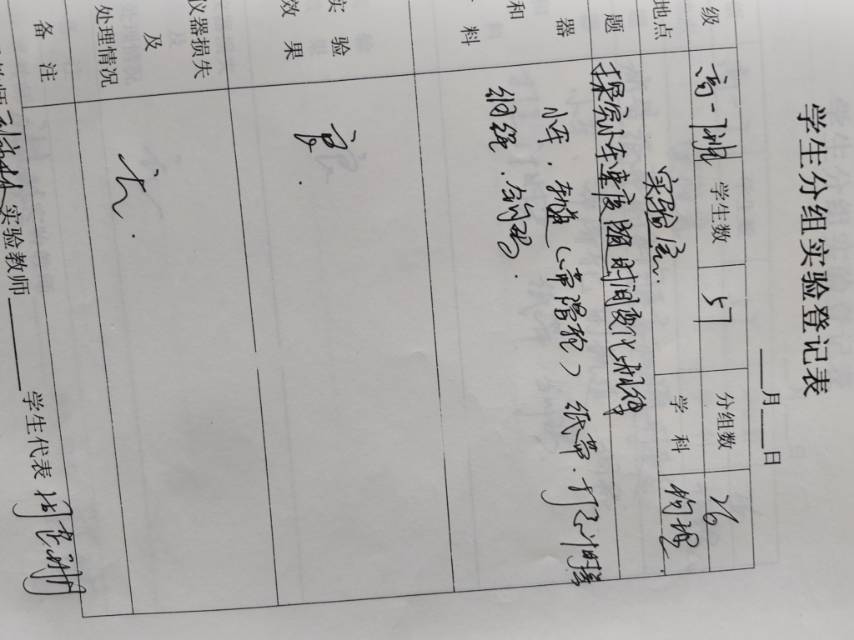 学生分组实验登记表
月 日
级 高一 学生数 57 分组数 26
地点 实验室. 学科 物理.
题 探究小车速度随时间变化规律
器 小车. 轨道(带滑轮) 纸带. 打点计时器
和
料 细绳. 钩码.
实验
效果 良.
仪器损失
及
处理情况 无.
备注
实验教师 学生代表